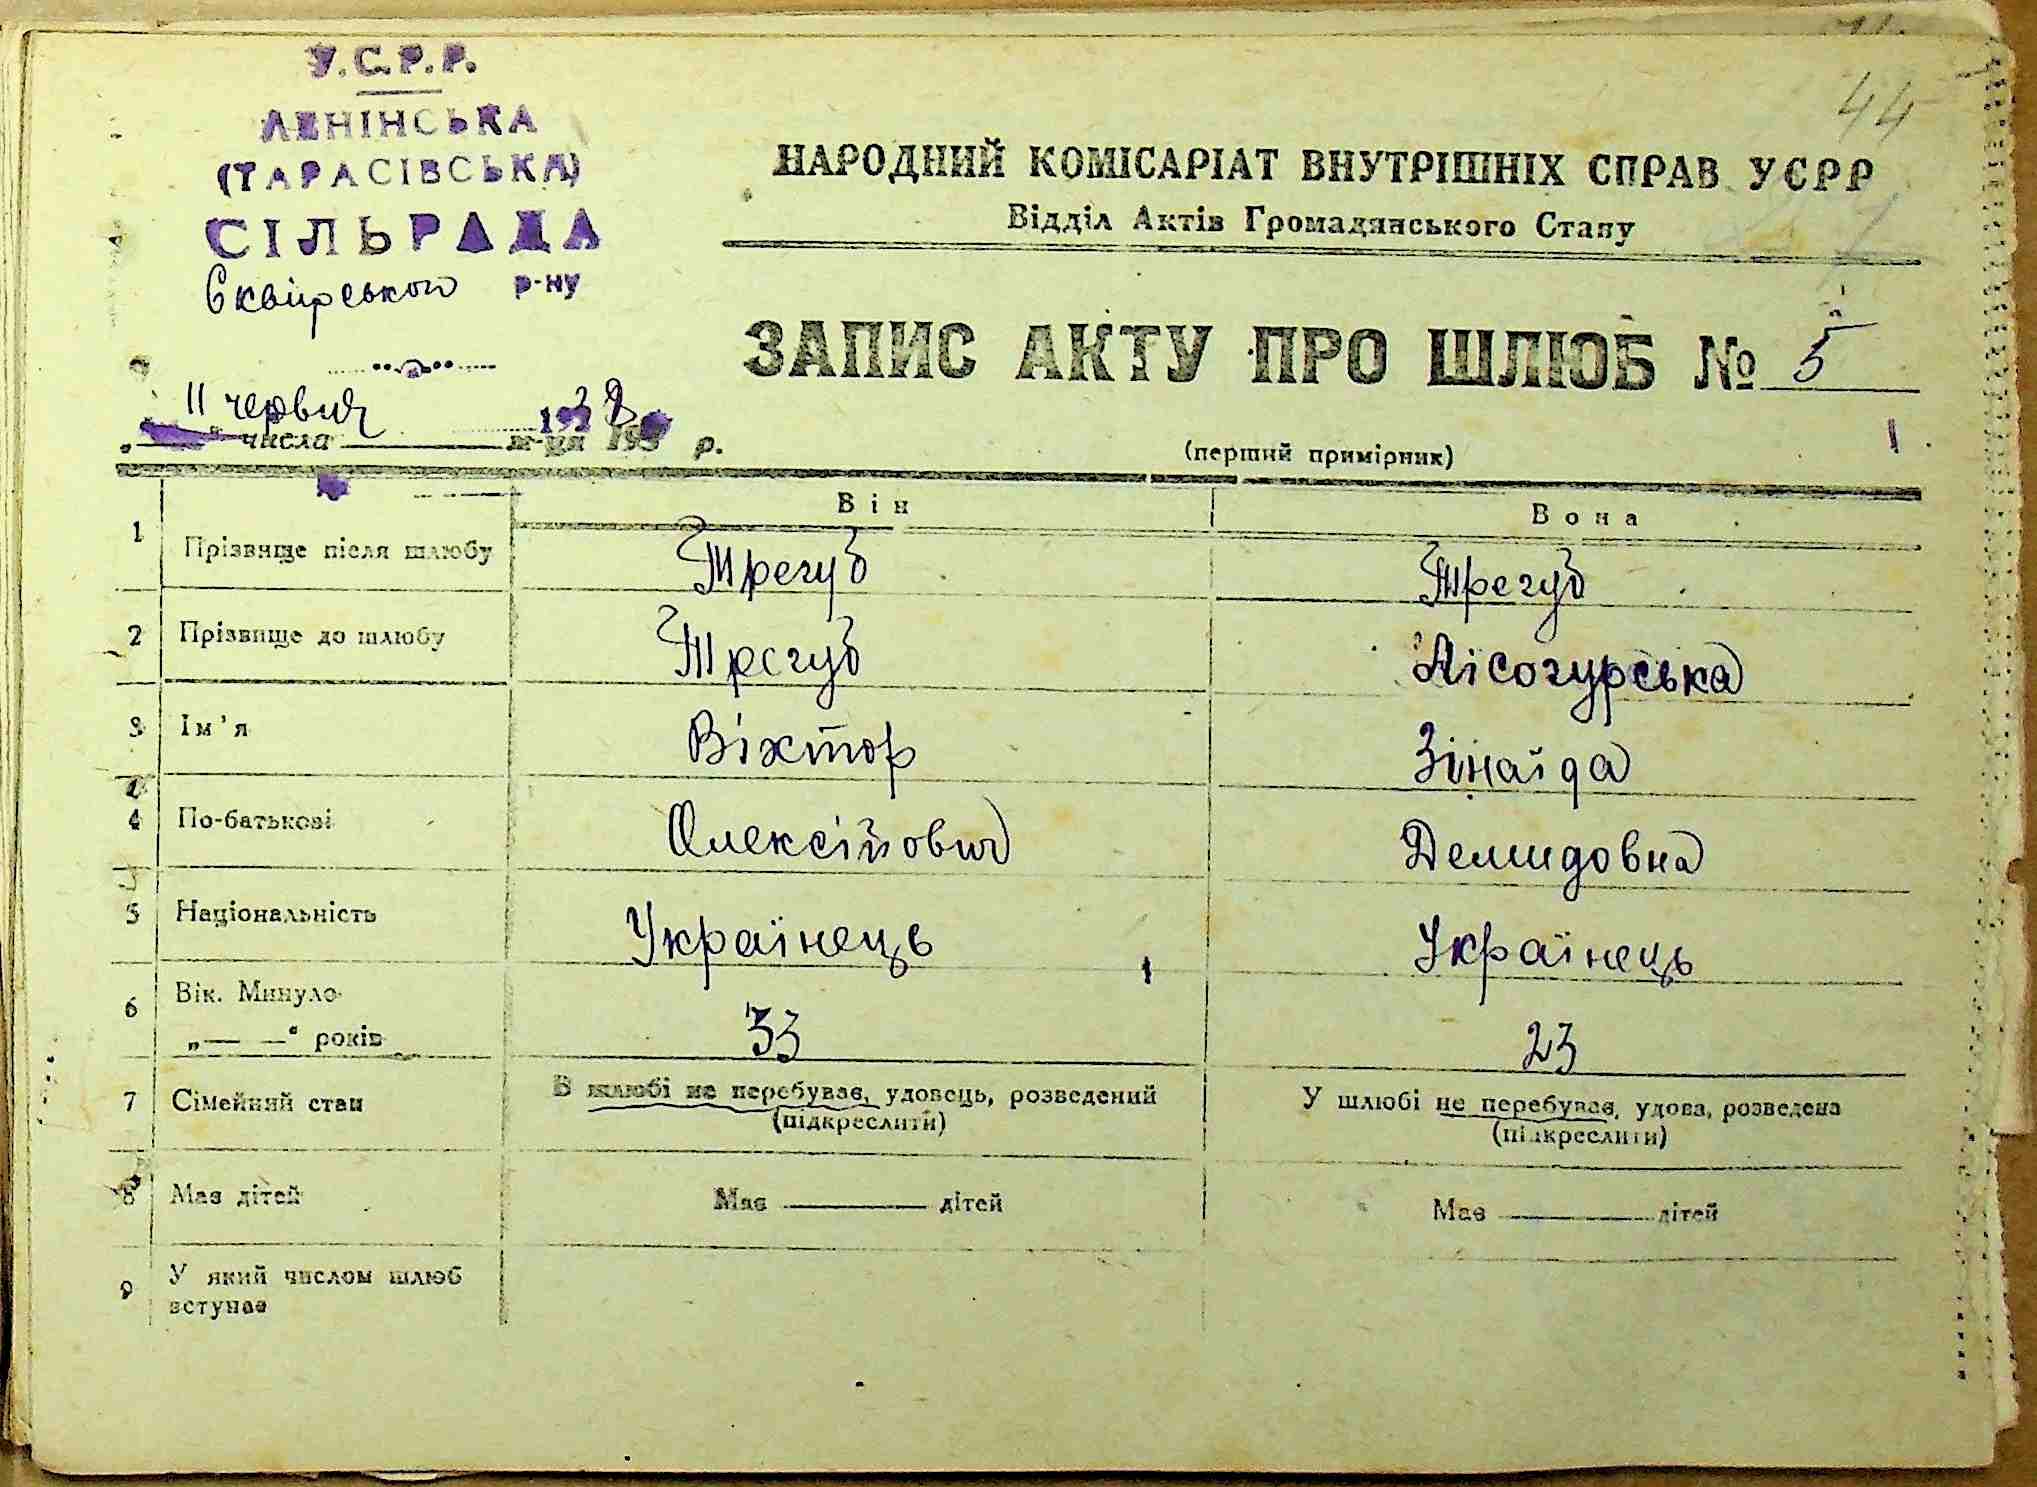 У.С.Р.Р.
ЛЕНІНСЬКА
(ТАРАСІВСЬКА)
СІЛЬРАДА
Сквирського р-ну
44
НАРОДНИЙ КОМІСАРІАТ ВНУТРІШНІХ СПРАВ УСРР
Відділ Актів Громадянського Стану
ЗАПИС АКТУ ПРО ШЛЮБ № 5
11 червня
числа м-ця р.
(перший примірник)
Він Вона
1 Прізвище після шлюбу Трегуб Трегуб
2 Прізвище до шлюбу Трегуб Лісогурська
3 Ім'я Віктор Зінаїда
4 По-батькові Олексійович Демидовна
5 Національність Українець Українець
6 Вік. Минуло 33 23
„— —“ років
7 Сімейний стан В шлюбі не перебуває, удовець, розведений У шлюбі не перебуває, удова, розведена
(підкреслити) (підкреслити)
8 Має дітей Має ——— дітей Має ——— дітей
9 У який числом шлюб
вступає